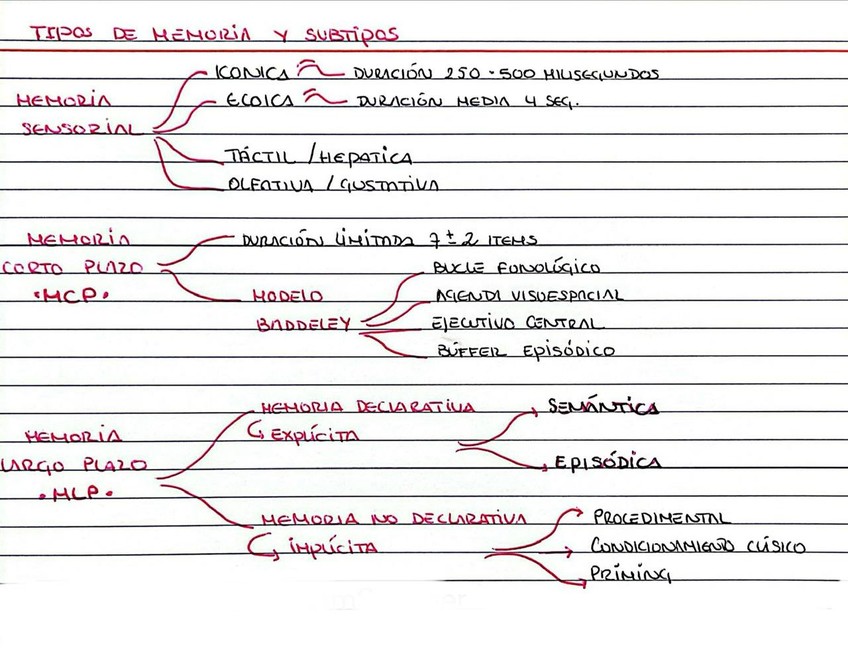 TIPOS DE MEMORIA Y SUBTIPOS
ICONICA DURACIÓN 250 - 500 MILISEGUNDOS
MEMORIA
SENSORIAL
ECOICA DURACIÓN MEDIA 4 SEG.
TÁCTIL / HEPATICA
OLFATIVA / GUSTATIVA
MEMORIA
CORTO PLAZO
•MCP•
DURACIÓN LIMITADA 7 ± 2 ITEMS
MODELO
BADDELEY
BUCLE FONOLÓGICO
AGENDA VISUESPACIAL
EJECUTIVO CENTRAL
BÚFFER EPISÓDICO
MEMORIA
LARGO PLAZO
•MLP•
MEMORIA DECLARATIVA
EXPLÍCITA
SEMÁNTICA
EPISÓDICA
MEMORIA NO DECLARATIVA
IMPLÍCITA
PROCEDIMENTAL
CONDICIONAMIENTO CLÁSICO
PRIMING